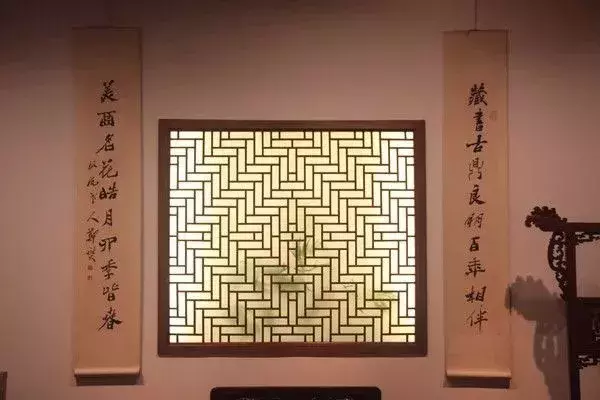 藏書古鼎良朋百年相伴
美酒名花皓月四季皆春